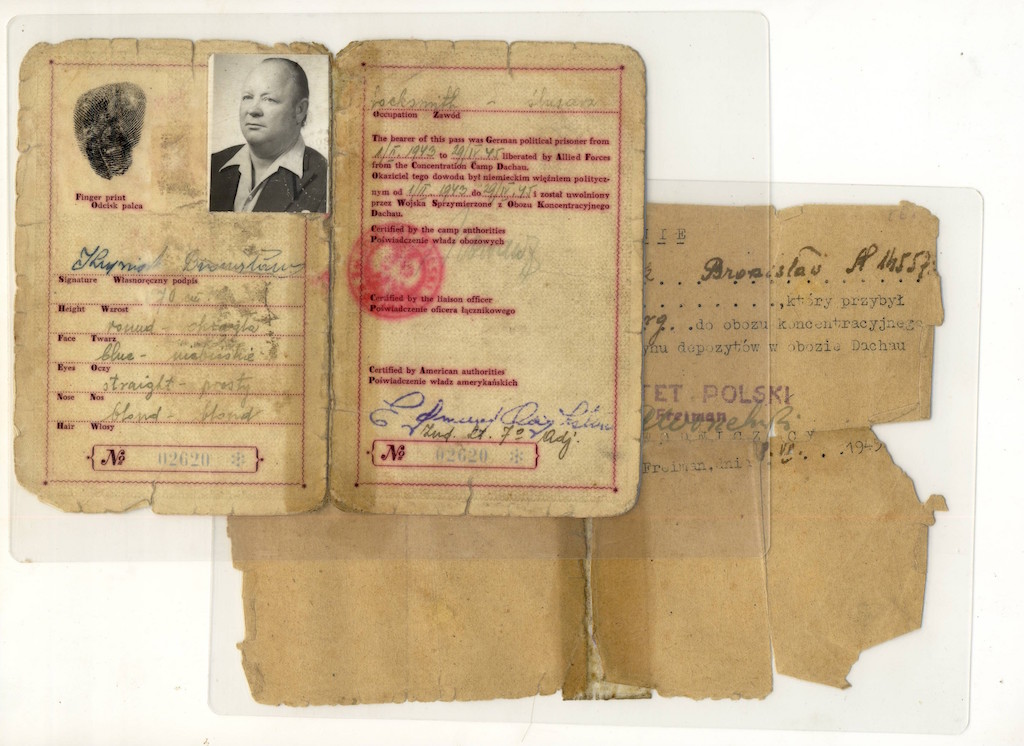 Finger print
Odcisk palca
Signature Własnoręczny podpis
Height Wzrost
round -
Face Twarz
blue - niebieskie
Eyes Oczy
straight - prosty
Nose Nos
blond - blond
Hair Włosy
№ 02620 *
locksmith - ślusarz
Occupation Zawód
The bearer of this pass was German political prisoner from
1/II. 1943 to 29/IV 45 liberated by Allied Forces
from the Concentration Camp Dachau.
Okaziciel tego dowodu był niemieckim więźniem politycz-
nym od 1/II. 1943 do 29/IV 45 i został uwolniony
przez Wojska Sprzymierzone z Obozu Koncentracyjnego
Dachau.
Certified by the camp authorities
Poświadczenie władz obozowych
Certified by the liaison officer
Poświadczenie oficera łącznikowego
Certified by American authorities
Poświadczenie władz amerykańskich
Adj.
№ 02620 *
NIE
Bronislav № 14557
, który przybył
rg. . do obozu koncentracyjnego
ynu depozytów w obozie Dachau
TET POLSKI
Freiman
Freiman, dnia . . . 1945